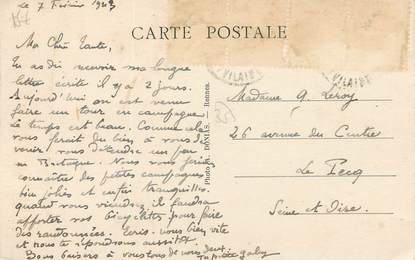 Le 7 Février 1943
CARTE POSTALE
Ma Chère Tante,
Tu as dû recevoir ma longue
lettre écrite il y a 2 jours.
Aujourd'hui on est venu
faire un tour en campagne
Le temps est beau. Comme cela
vous ferait du bien à vous de
venir vous détendre un peu
en Bretagne. Nous vous ferions
connaître des petites campagnes
bien jolies et enfin tranquilles.
quand vous viendrez il faudra
apporter vos bicyclettes pour faire
des randonnées. Ecris-nous bien vite
et nous te répondrons aussitôt.
Bons baisers à vous tous de nous deux.
Ta nièce Gaby
Photo A. DONIAS. — Rennes.
VILAINE
VILAINE
Madame G. Leroy
26 avenue du Centre
Le Pecq
Seine et Oise.